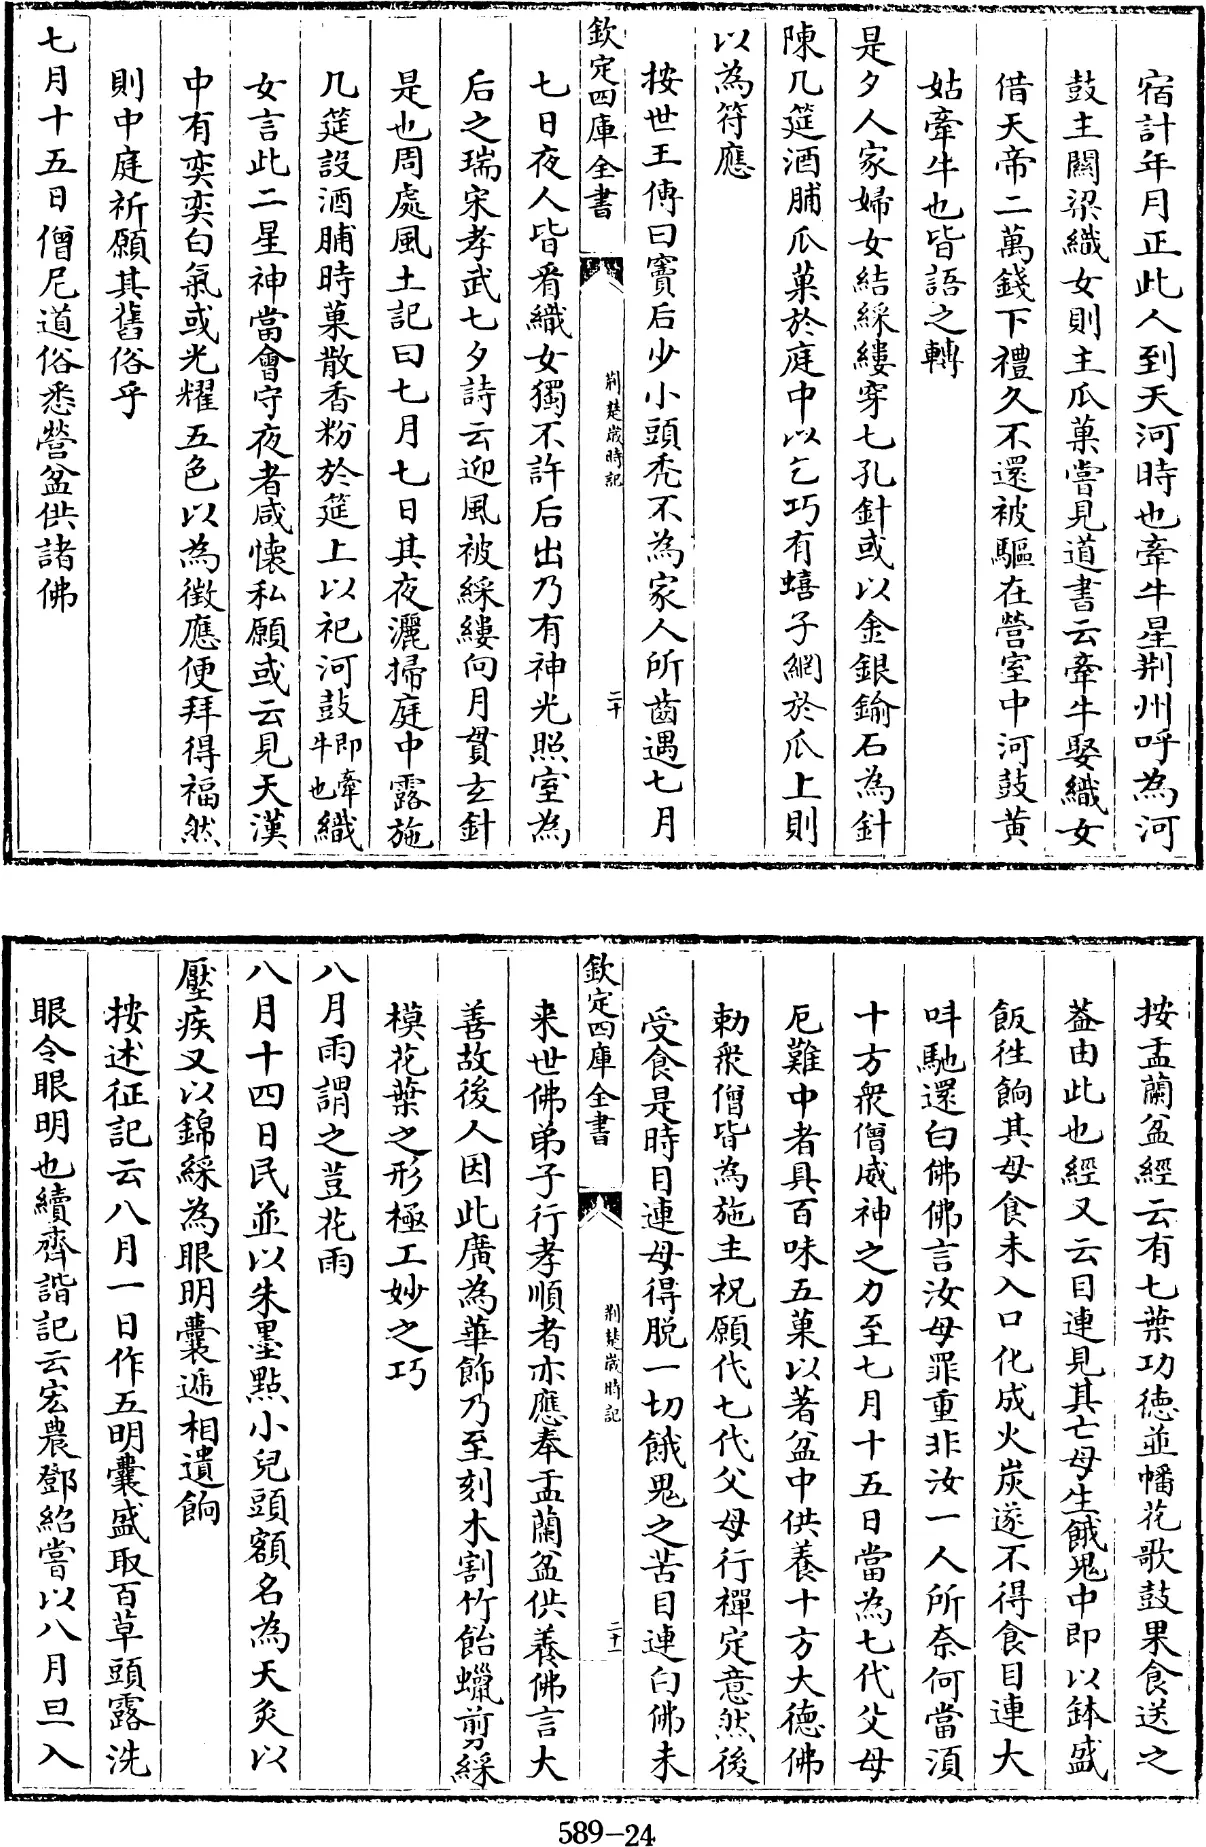 宿計年月正此人到天河時也牽牛星荆州呼為河
鼓主關梁織女則主瓜菓嘗見道書云牽牛娶織女
借天帝二萬錢下禮久不還被驅在營室中河鼓黄
姑牽牛也皆語之轉
是夕人家婦女結綵縷穿七孔針或以金銀鍮石為針
陳几筵酒脯瓜菓於庭中以乞巧有蟢子網於瓜上則
以為符應
按世王傳曰竇后少小頭禿不為家人所齒遇七月
欽定四庫全書
荆楚歲時記
二十
七日夜人皆看織女獨不許后出乃有神光照室為
后之瑞宋孝武七夕詩云迎風被綵縷向月貫玄針
是也周處風土記曰七月七日其夜灑掃庭中露施
几筵設酒脯時菓散香粉於筵上以祀河鼓即牽牛也織
女言此二星神當會守夜者咸懷私願或云見天漢
中有奕奕白氣或光耀五色以為徵應便拜得福然
則中庭祈願其舊俗乎
七月十五日僧尼道俗悉營盆供諸佛
按盂蘭盆經云有七葉功徳並幡花歌鼓果食送之
葢由此也經又云目連見其亡母生餓鬼中即以鉢盛
飯徃餉其母食未入口化成火炭遂不得食目連大
呌馳還白佛佛言汝母罪重非汝一人所奈何當湏
十方衆僧威神之力至七月十五日當為七代父母
厄難中者具百味五菓以著盆中供養十方大徳佛
勅衆僧皆為施主祝願代七代父母行禪定意然後
受食是時目連母得脱一切餓鬼之苦目連白佛未
欽定四庫全書
荆楚歲時記
二十一
来世佛弟子行孝順者亦應奉盂蘭盆供養佛言大
善故後人因此廣為華飾乃至刻木割竹飴蠟剪綵
模花葉之形極工妙之巧
八月雨謂之荳花雨
八月十四日民並以朱墨點小兒頭額名為天灸以
壓疾又以錦綵為眼明囊遞相遺餉
按述征記云八月一日作五明囊盛取百草頭露洗
眼令眼明也續齊諧記云宏農鄧紹嘗以八月旦入
589-24